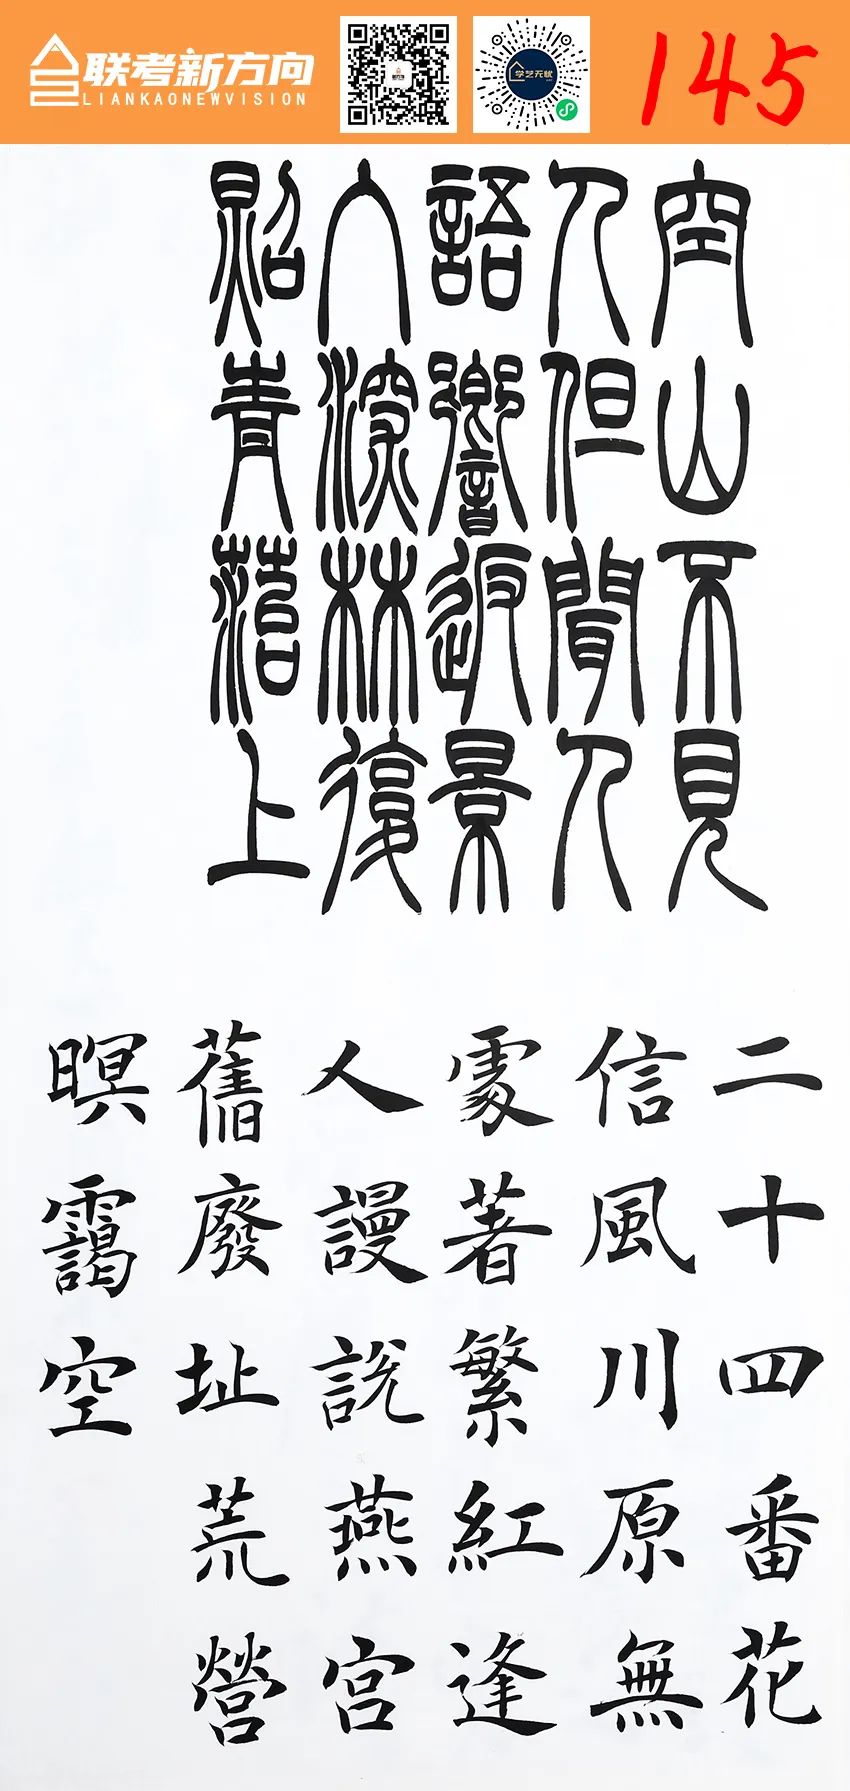 联考新方向
LIANKAONEWVISION
学艺无忧
145
空山不見
人但聞人
語響返景
入深林復
照青落上
二十四番花
信風川原無
處著繁紅逢
人謾說燕宮
舊廢址荒營
暝靄空